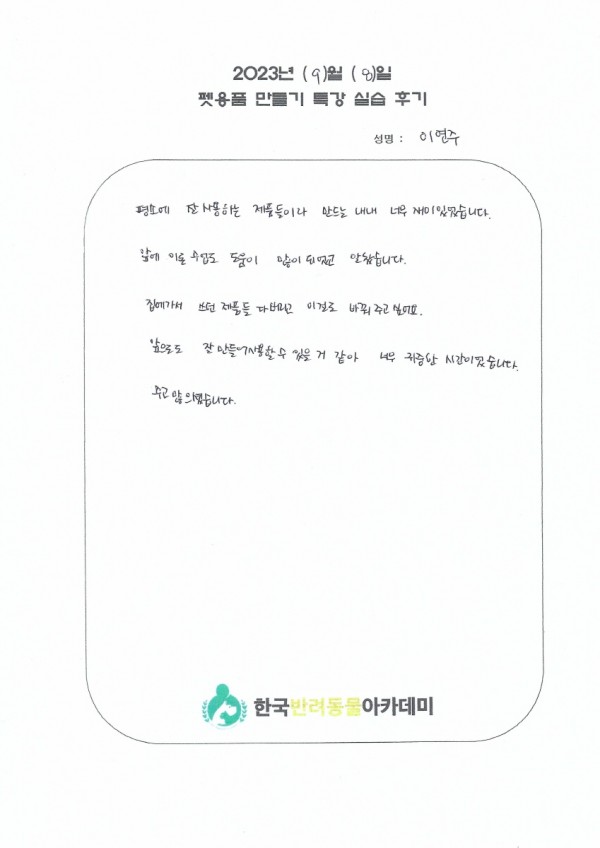 2023년 (9)월 (8)일
펫용품 만들기 특강 실습 후기
성명 : 이연주
평소에 잘 사용하는 제품들이나 만드는 내내 너무 재미있었습니다.
앞에 이론 수업도 도움이 많이 되었고 알찼습니다.
집에가서 쓰던 제품들 다버리고 이걸로 바꿔주고 싶어요.
앞으로도 잘 만들어 사용할 수 있을 거 같아 너무 귀중한 시간이었습니다.
수고 많으셨습니다.
한국반려동물아카데미